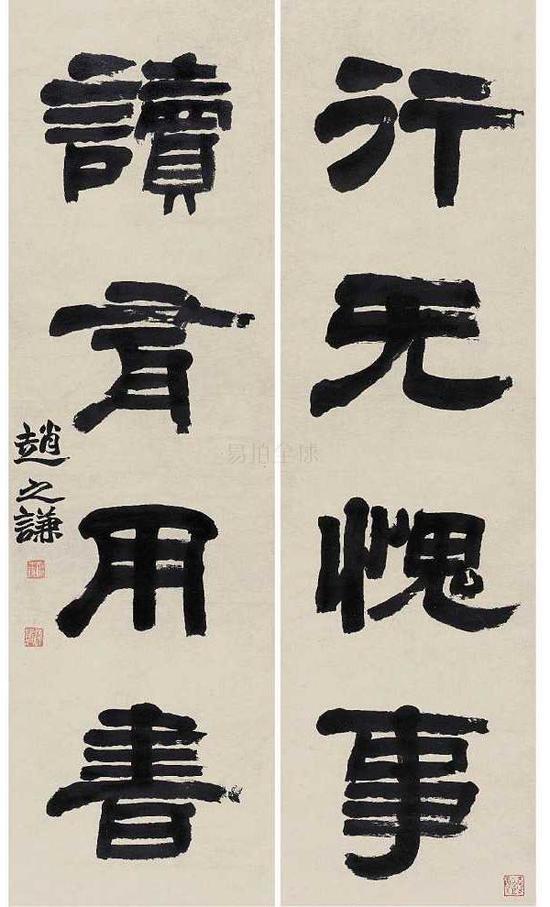 行无愧事
讀有用書
趙之謙
易拍全球